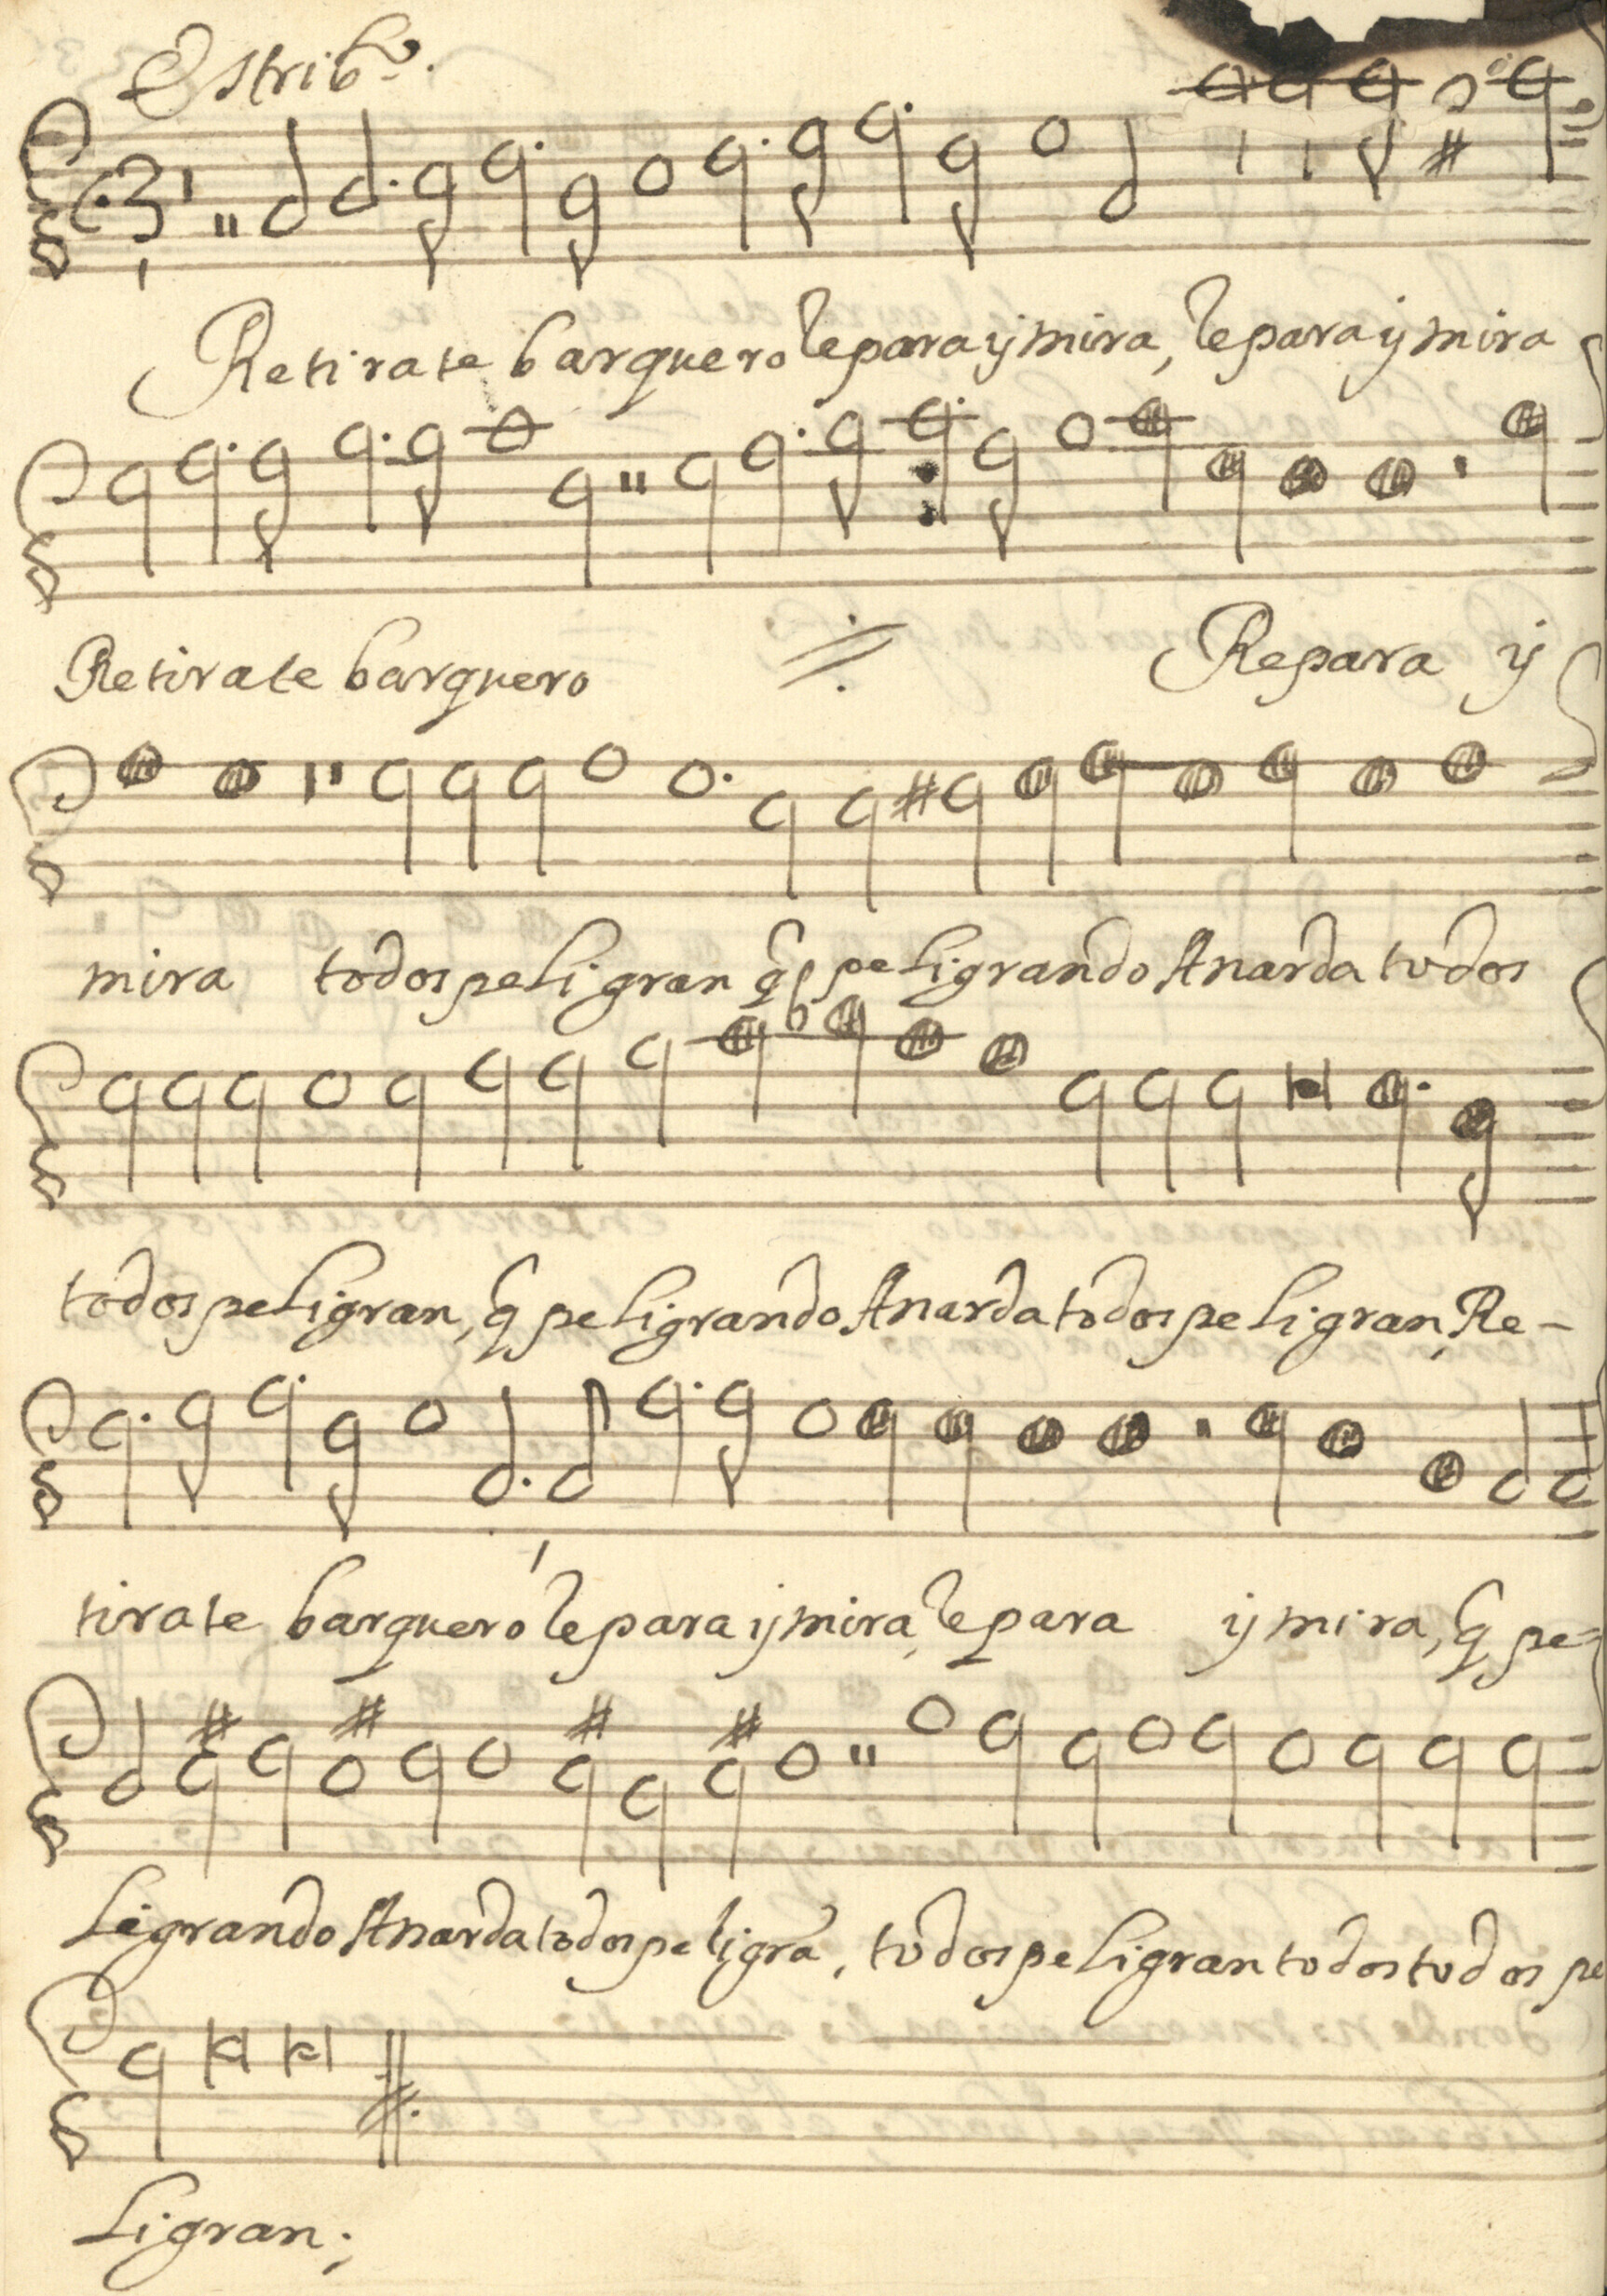 Estribo.
Retirate barquero Repara y mira, Repara y mira
Retirate barquero Repara y
mira todos peligran q̃ peligrando Anarda todos
todos peligran, q̃ peligrando Anarda todos peligran, Re-
tirate barquero Repara y mira, Repara y mira, q̃ pe=
Ligrando Anarda todos peligrã, todos peligran todos todos pe
Ligran;